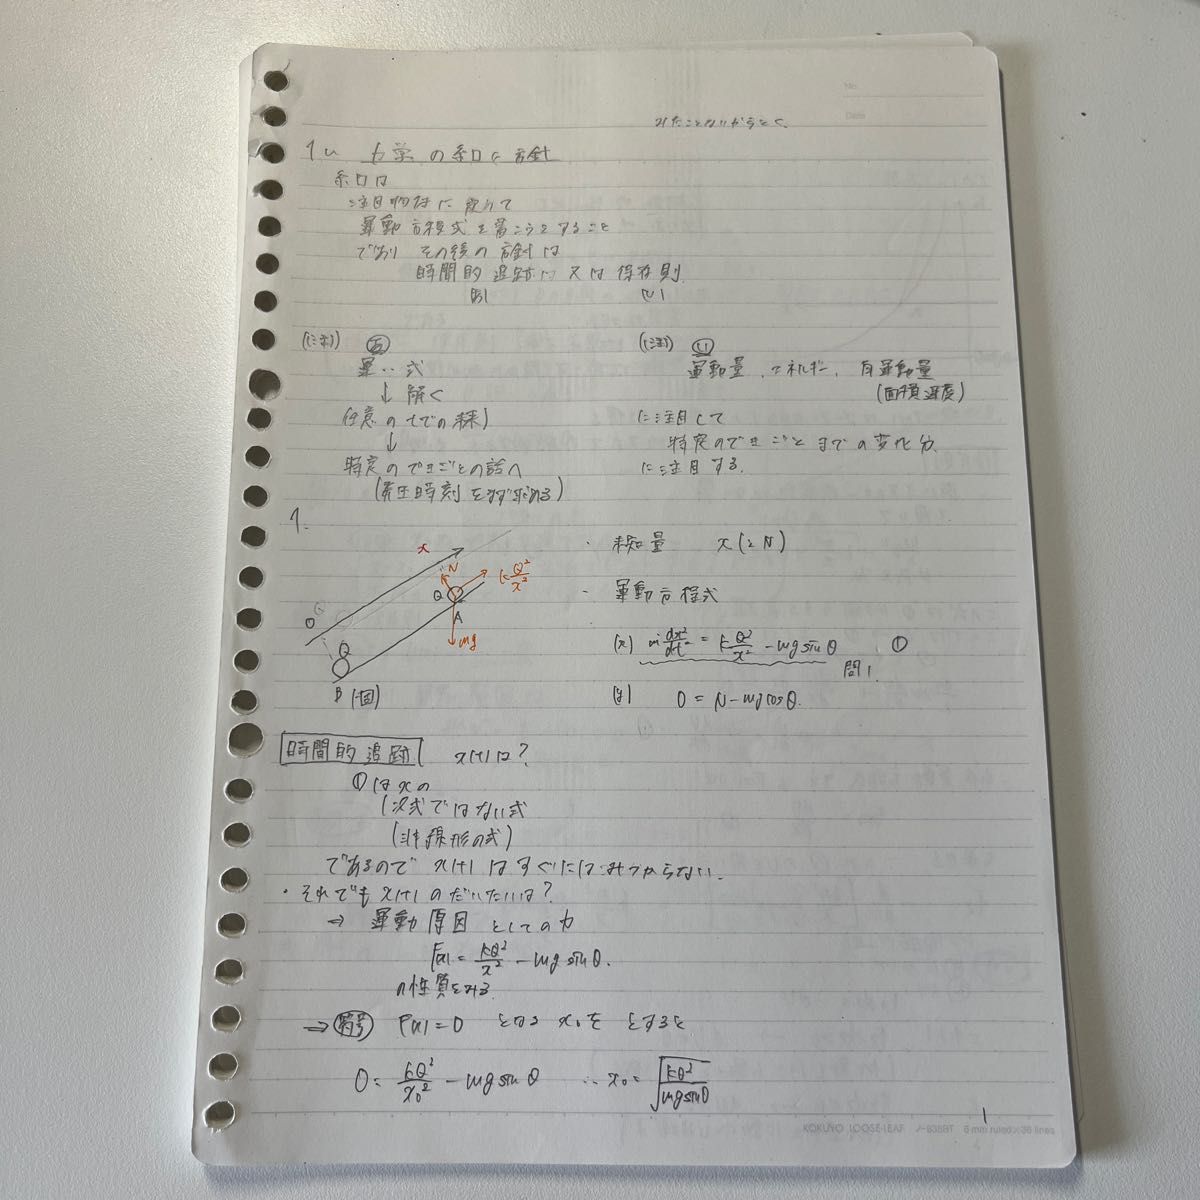 No.
Date
みたことないからとく、
1い 力学の糸口と方針
糸口は
注目物体に絞って
運動方程式を書こうとすること
であり その後の方針は
時間的追跡 又は 保存則
あ1 い1
(注) あ
運‥式
↓ 解く
任意のtでの
↓
特定のできごとの話へ
(発生時刻をまず求める)
(注) い
運動量、エネルギー、角運動量
(面積速度)
に注目して
特定のできごとまでの変化分
に注目する.
1.
x
N
kQ²/x²
Q
A
mg
O
Q
B (固)
・ 未知量 x (とN)
・ 運動方程式
(x) m dx²/dt² = kQ²/x² - mg sinθ ①
問1
(y) 0 = N - mg cosθ.
時間的追跡 x(t)は?
①はxの
1次式ではない式
(非線形の式)
であるので x(t)はすぐにはみつからない.
・それでも x(t)のだいたいは?
→ 運動原因としての力
F(x) = kQ²/x² - mg sinθ.
の性質をみる
→ 符号 F(x)=0 となる x₀を とすると
0 = kQ²/x₀² - mg sinθ ∴ x₀ = √(kQ²/mg sinθ)
1
KOKUYO LOOSE-LEAF ノ-836BT 6 mm ruled×36 lines